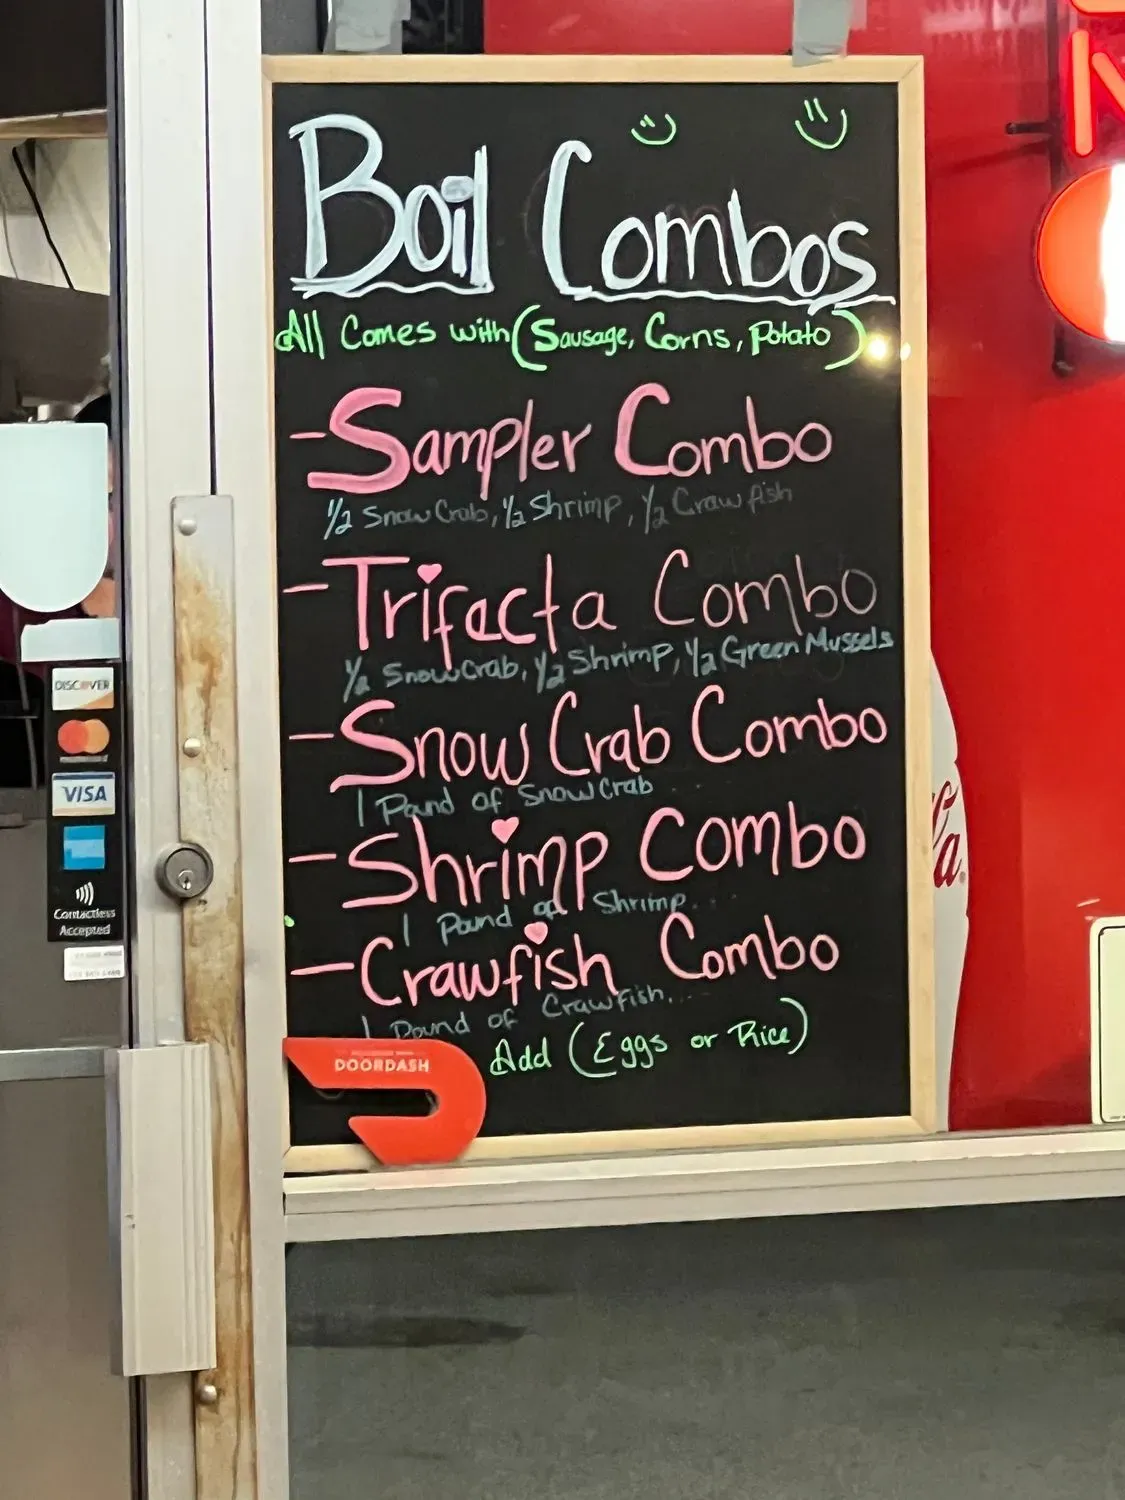 Boil Combos
All Comes with (Sausage, Corns, Potato)
-Sampler Combo
1/2 Snow Crab, 1/2 Shrimp, 1/2 Crawfish
-Trifecta Combo
1/2 Snow Crab, 1/2 Shrimp, 1/2 Green Mussels
-Snow Crab Combo
1 Pound of Snow Crab
-Shrimp Combo
1 Pound of Shrimp...
-Crawfish Combo
1 Pound of Crawfish...
Add (Eggs or Rice)
DOORDASH
DISCOVER
VISA
Contactless
Accepted